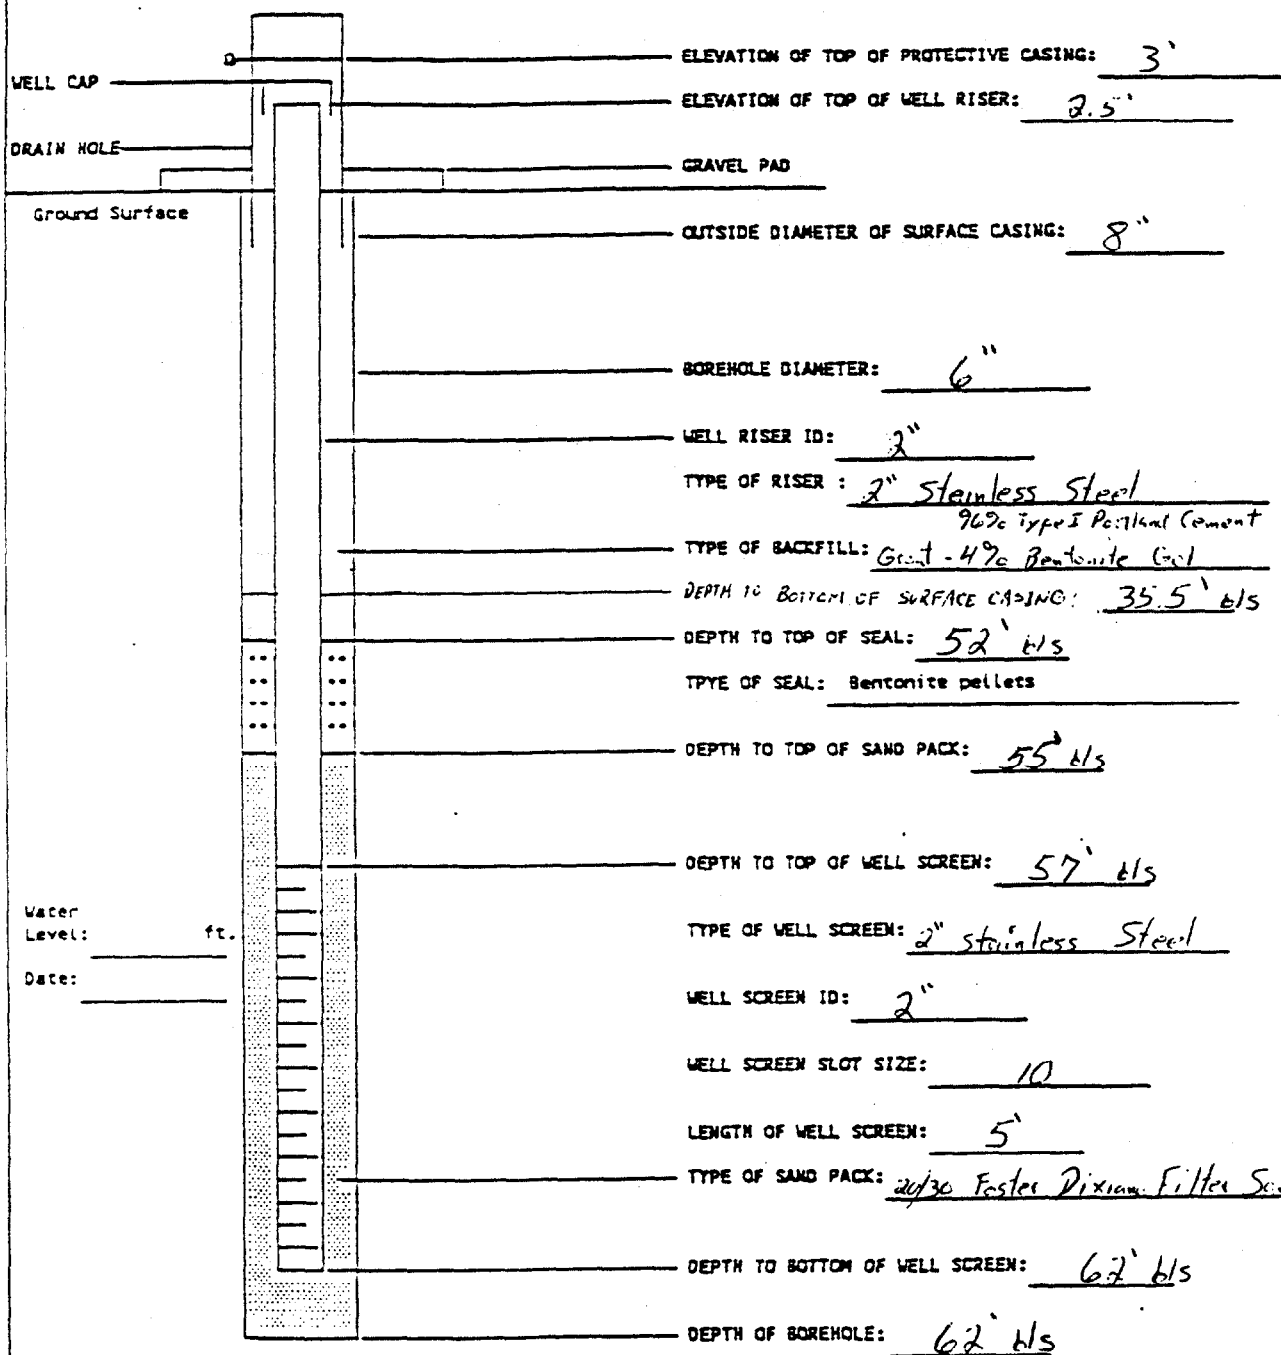 ELEVATION OF TOP OF PROTECTIVE CASING: 3'
WELL CAP
ELEVATION OF TOP OF WELL RISER: 2.5'
DRAIN HOLE
GRAVEL PAD
Ground Surface
OUTSIDE DIAMETER OF SURFACE CASING: 8"
BOREHOLE DIAMETER: 6"
WELL RISER ID: 2"
TYPE OF RISER : 2" Stainless Steel
96% Type I Portland Cement
TYPE OF BACKFILL: Grout - 4% Bentonite Gel
DEPTH TO BOTTOM OF SURFACE CASING: 35.5' bls
DEPTH TO TOP OF SEAL: 52' bls
TPYE OF SEAL: Bentonite pellets
DEPTH TO TOP OF SAND PACK: 55' bls
DEPTH TO TOP OF WELL SCREEN: 57' bls
Water
Level: ft.
TYPE OF WELL SCREEN: 2" stainless Steel
Date:
WELL SCREEN ID: 2"
WELL SCREEN SLOT SIZE: 10
LENGTH OF WELL SCREEN: 5'
TYPE OF SAND PACK: 20/30 Foster Filter
DEPTH TO BOTTOM OF WELL SCREEN: 62' bls
DEPTH OF BOREHOLE: 62' bls